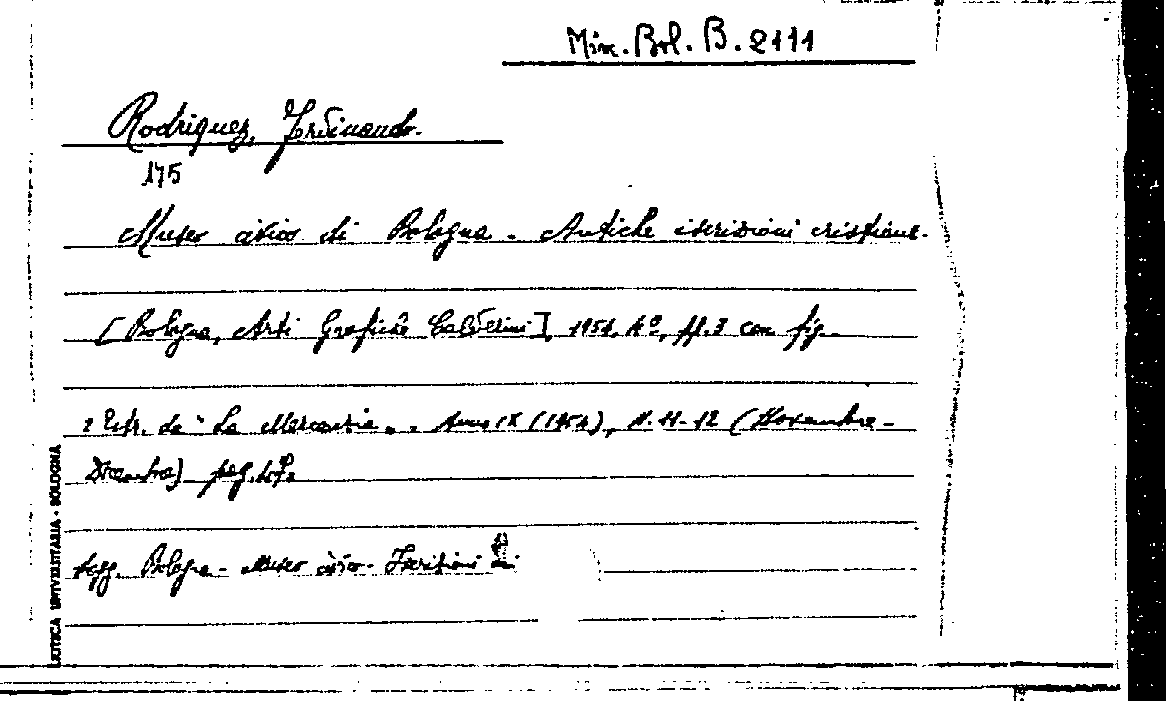 Misc. Bol. B. 2111
Rodriguez, Ferdinando.
175
Museo civico di Bologna. Antiche iscrizioni cristiane.
[Bologna, Arti Grafiche Calderini], 1954, 4º, ff. 3 con fig.
: Estr. da "La Mercanzia". Anno IX (1954), N. 11-12 (Novembre-
Dicembre)
Sogg. Bologna - Museo civico - Iscrizioni
LITOTICA UNIVERSITARIA - BOLOGNA